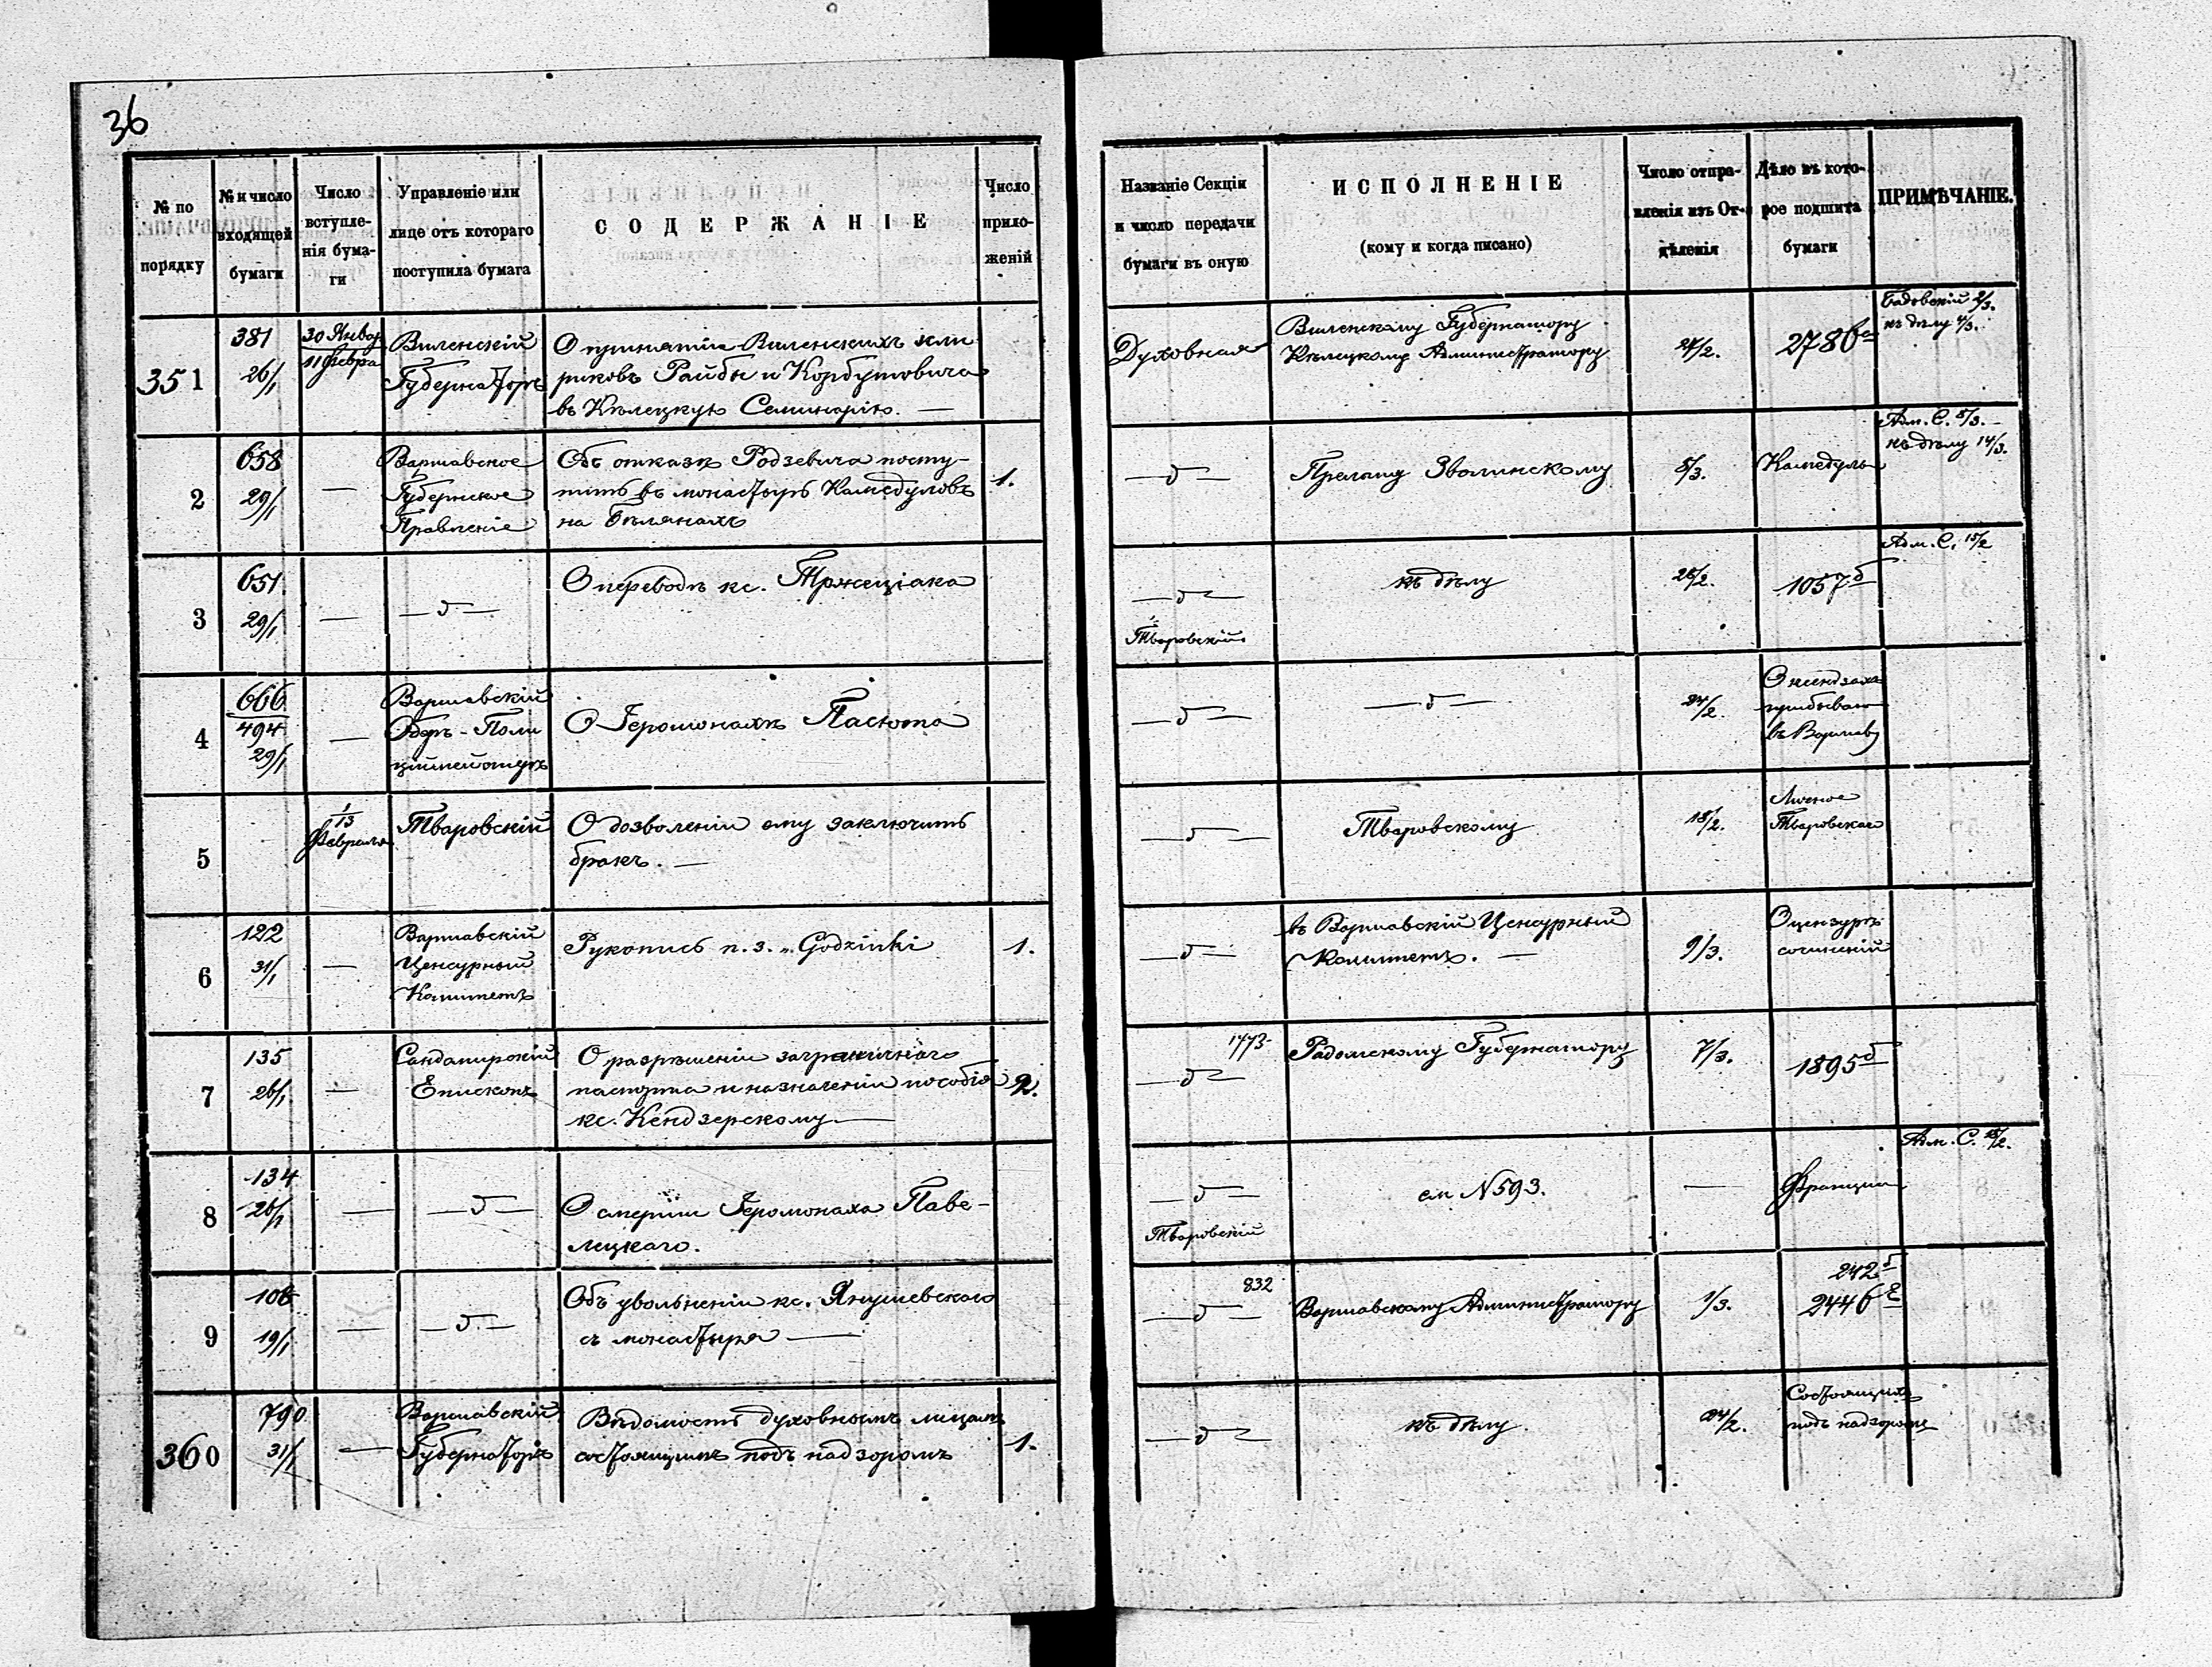 36
№ по порядку
№ и число входящей бумаги
Число вступле-нія бума-ги
Управленіе или лице отъ котораго поступила бумага
СОДЕРЖАНІЕ
Число прило-женій
Названіе Секціи и число передачи бумаги въ оную
ИСПОЛНЕНІЕ
(кому и когда писано)
Число отпра-вленія изъ От-дѣленія
Дѣло въ кото-рое подшита бумаги
ПРИМѢЧАНІЕ.
351
381
26/1
30 Январ
11 Февра
Виленскій
Губернаторъ
О принятіи Виленскихъ кли
риковъ Райбы и Корбутовича
въ Кѣлецкую Семинарію. —
Духовная
Виленскому Губернатору
Кѣлецкому Администратору
24/2.
2786
Бадовскій 2/3.
къ дѣлу 4/3.
2
658
29/1
—
Варшавское
Губернское
Правленіе
Объ отказѣ Родзевича посту-
пить въ монастырь Камедуловъ
на Бѣлянахъ
1.
— д —
Прелату Зволинскому
5/3.
Камедулы
Адм. С. 5/3. —
къ дѣлу 14/3.
3
651.
29/1
—
— д —
О переводѣ кс. Тржеціака
— д —
Тваровскій
къ дѣлу
26/2.
1057 д
Адм. С. 15/2
4
666
494
29/1
—
Варшавскій
Оберъ-Поли
ціймейстеръ
О Іеромонахѣ Пасюта
— д —
— д —
24/2.
О ксендзахъ
прибываю
въ Варшаву
5
1/13
Февраля
Тваровскій
О дозволеніи ему заключить
бракъ. —
— д —
Тваровскому
18/2.
Личное
Тваровскаго
6
122
31/1
—
Варшавскій
Ценсурный
Комитетъ
Рукопись п. з. „Godzinki
1.
— д —
въ Варшавскій Ценсурный
Комитетъ. —
9/3.
О цензурѣ
сочиненій
7
135
26/1
—
Сандомирскій
Епископъ
О разрѣшеніи заграничнаго
паспорта и назначеніи пособія
кс. Кендзерскому —
2.
1773
— д —
Радомскому Губернатору
7/3.
1895 д
8
134
26/1
—
— д —
О смерти Іеромонаха Паве-
лецкаго.
— д —
Тваровскій
см N 593.
—
Франція
Адм. С. 15/2.
9
106
19/1
—
— д. —
Объ увольненіи кс. Янушевскаго
съ монастыря —
832
— д —
Варшавскому Администратору
1/3.
242
2446
360
790
31/1
—
Варшавскій
Губернаторъ
Вѣдомость духовнымъ лицамъ
состоящимъ подъ надзоромъ
1.
— д —
къ дѣлу.
24/2.
Состоящихъ
подъ надзоромъ